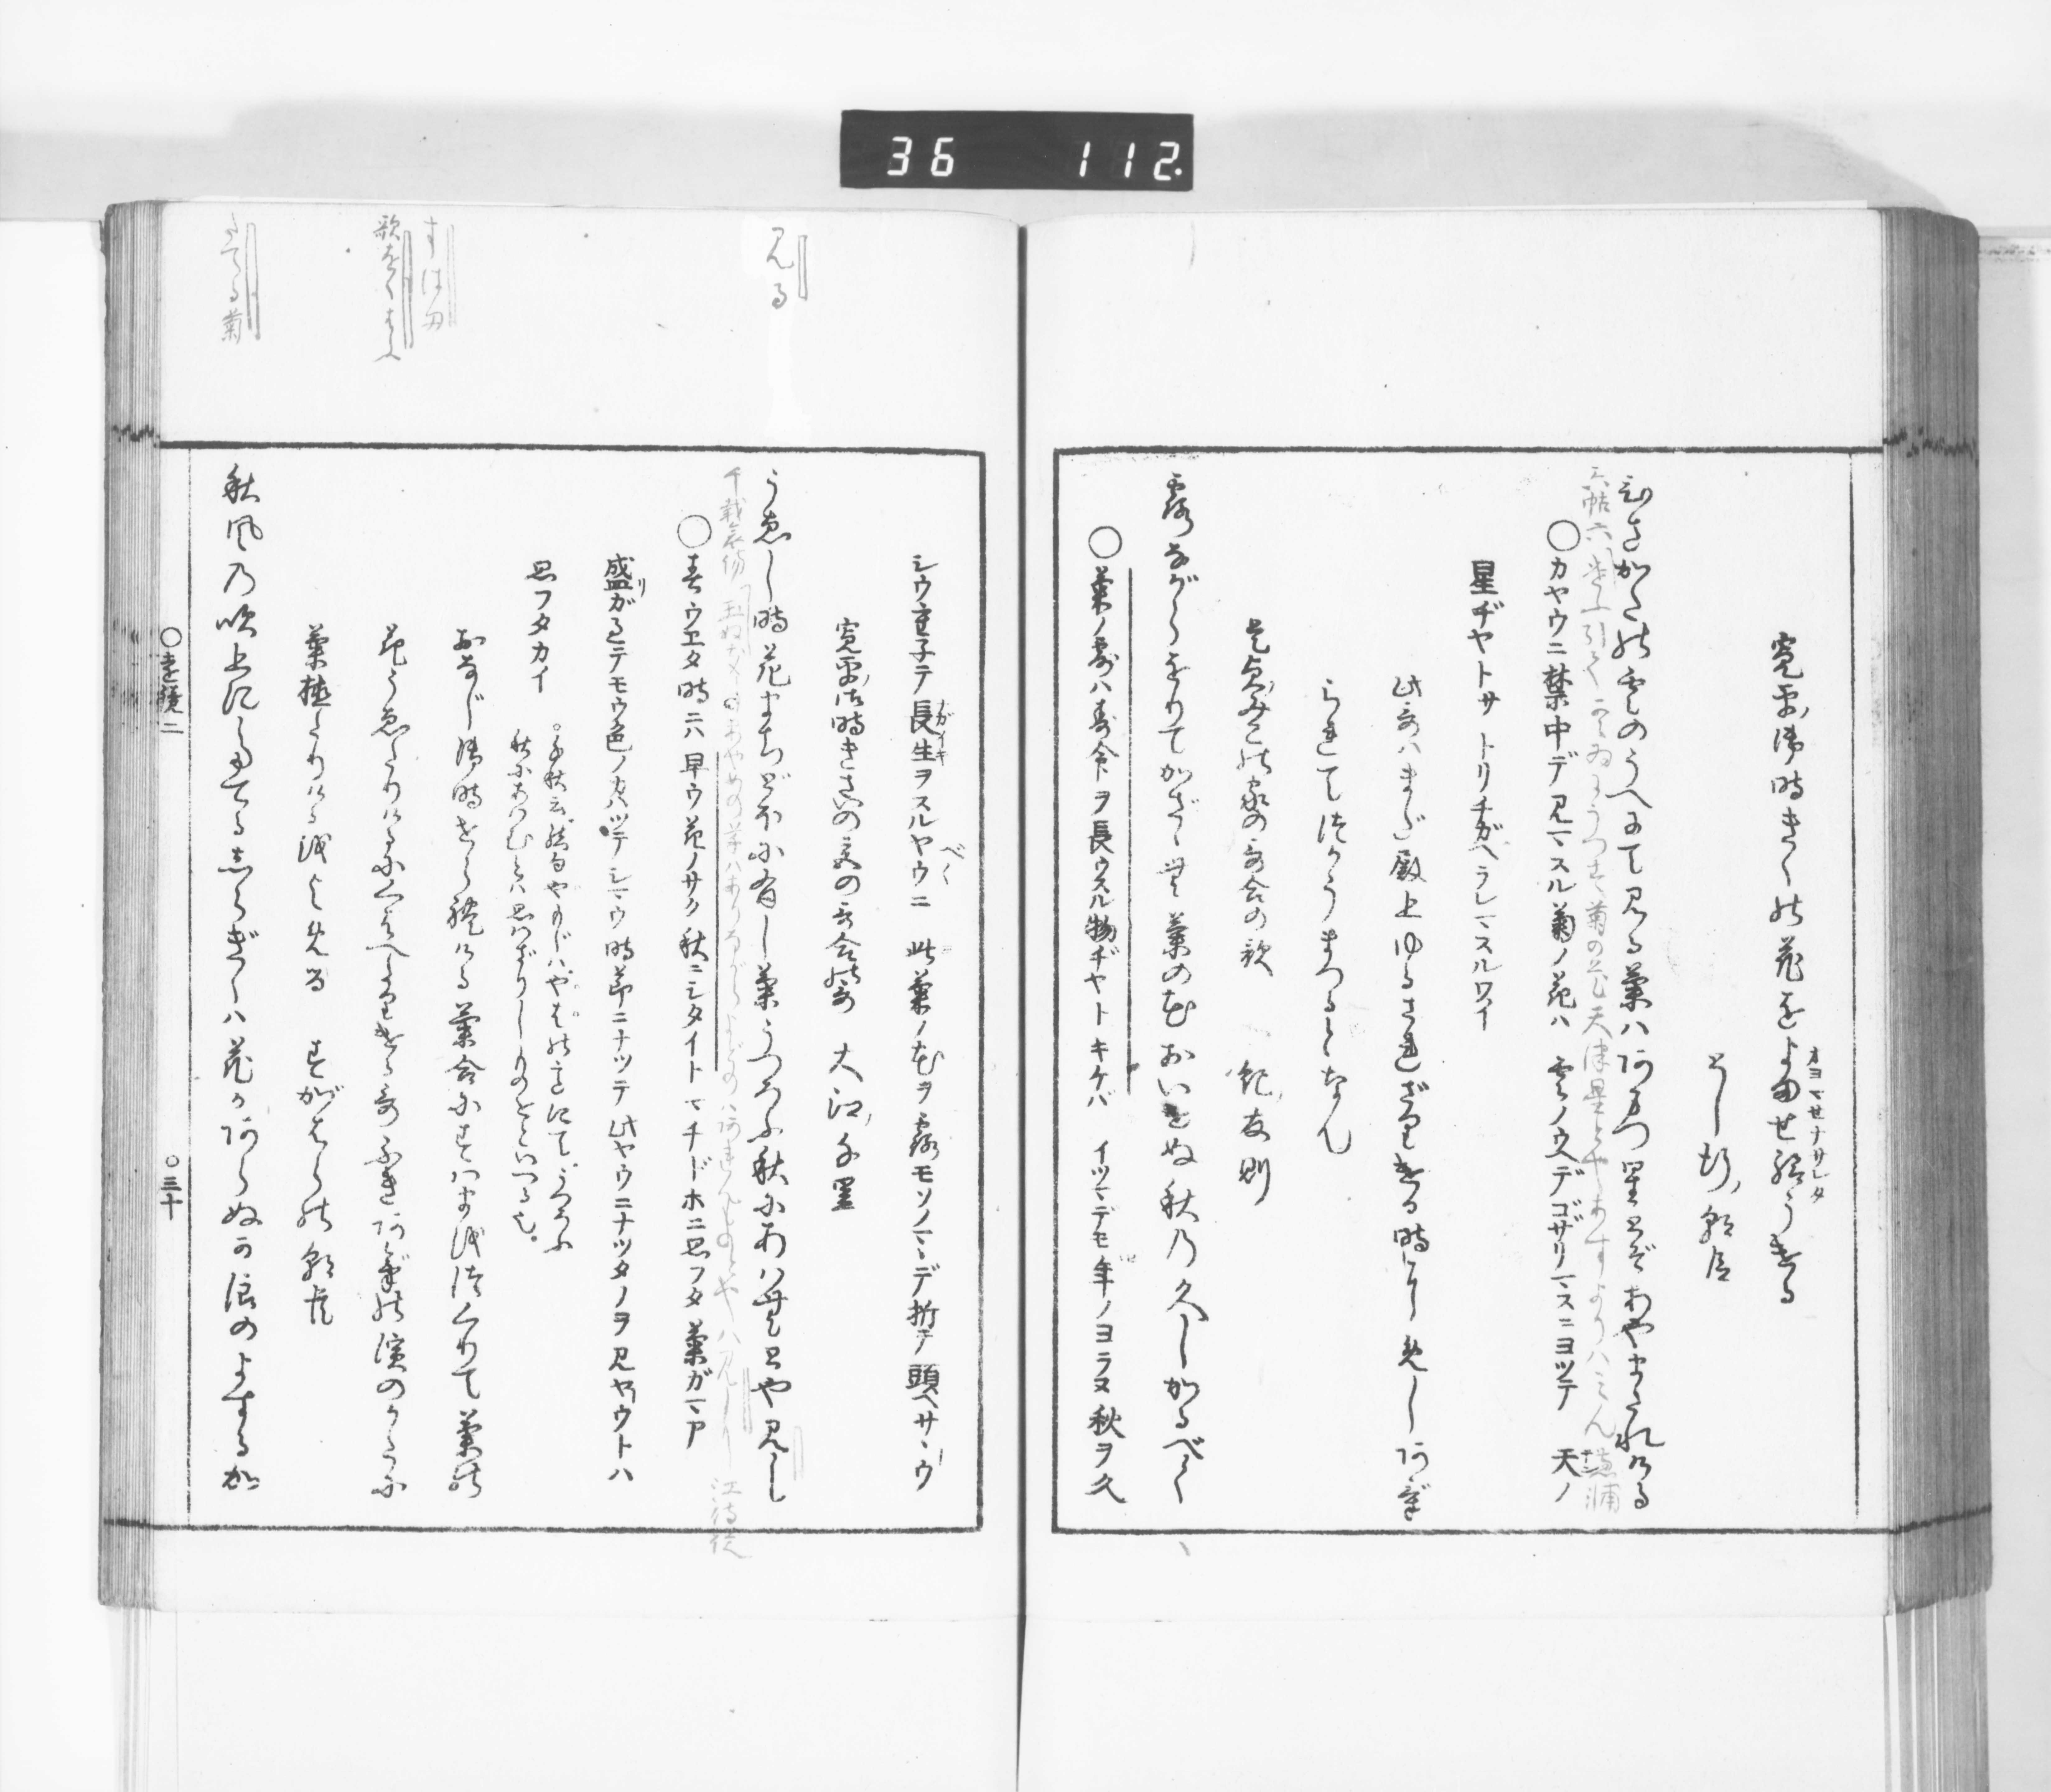 36 112.
寛平御時きくの花をよませ給うける
オヨマセナサレタ
としゆき朝臣
ひさかたの雲のうへにて見る菊ハあまつ星とぞあやまたれける
○カヤウニ禁中デ見マスル菊ノ花ハ 雲ノウヘデゴザリマスニヨツテ 天ノ
星ヂヤトサ トリチガヘラレマスルワイ
此哥ハまだ殿上ゆるされざりける時にめしあげ
られてつかうまつるとなん
是貞みこの家の哥合の歌 紀友則
露ながらをりてかざさむ菊の花おいせぬ秋乃久しかるべく
○菊ノ露ハ寿命ヲ長ウスル物ヂヤトキケバ イツマデモ年ノヨラヌ秋ヲ久
見る
シウ重子テ長生ヲスルヤウニ 此菊ノ花ヲ露モソノマヽデ折テ頭ヘサヽウ
ナガイキ
べく
寛平御時きさいの宮の哥合の哥 大江千里
うゑし時花まちどほに有し菊うつろふ秋にあハむとや見し
○春ウエタ時ニハ早ウ花ノサク秋ニシタイト マチドホニ思フタ菊ガマア
盛リガ過テモウ色ノカハツテシマウ時節ニナツテ 此ヤウニナツタノヲ見ヤウトハ
思フタカイ
すはま
歌をくはへ
おなじ御時せられける菊合にすはまをつくりて菊の
花うゑたりけるにくはへたりける哥 ふきあげの濱のかたに
菊植たりけるをよめる すがはらの朝臣
たてる菊
秋風乃吹上にたてる志らぎくハ花かあらぬか浪のよするか
○遠鏡二
○三十